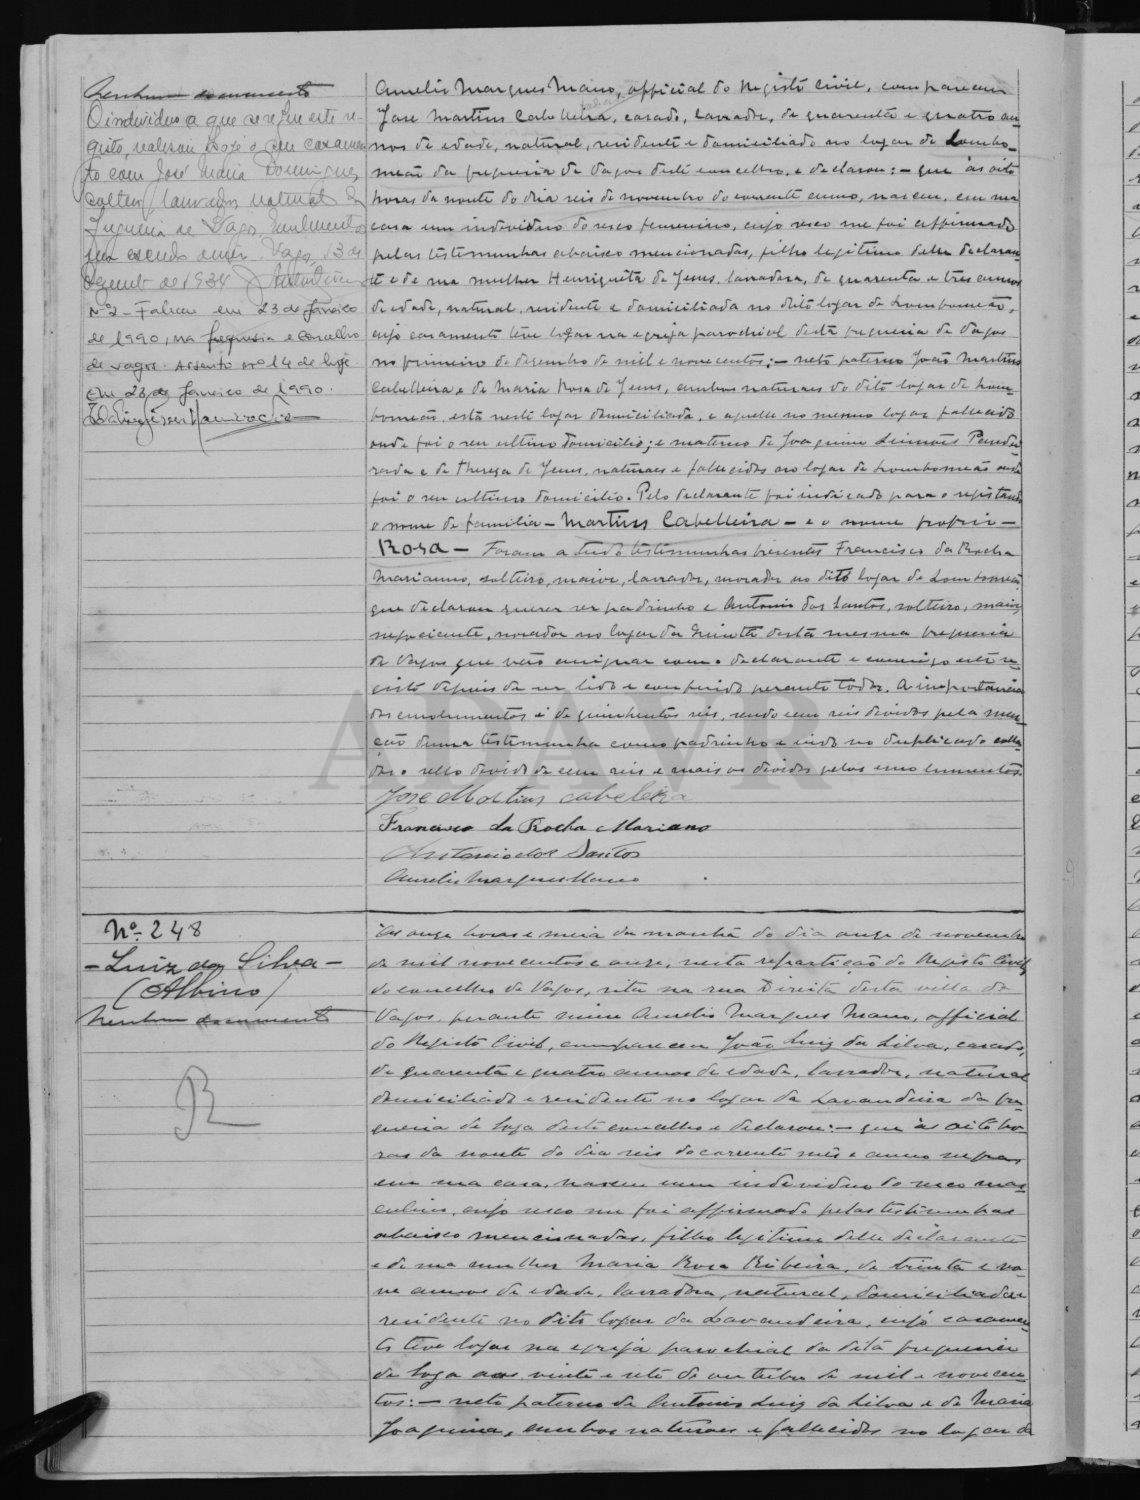 Nenhum documento
O individuo a que se refere este re-
gisto, realisou hoje o seu casamen-
to com José Maria Domingues,
solteiro, lavrador, natural da
freguesia de Vagos
Vagos, 13 de
de 1934
Nº 2 - Faleceu em 23 de Janeiro
de 1990, na freguesia e concelho
de Vagos. Assento nº 14 de hoje
Em 23 de Janeiro de 1990.
Aurelio Marques Mano, official do Registo Civil, compareceu
José Martins Cabelleira, casado, lavrador, de quarenta e quatro an-
nos de edade, natural, residente e domiciliado no logar de Lombo-
meão da freguesia de Vagos deste concelho, e declarou: - que ás oito
horas da noute do dia seis de novembro do corrente anno, nasceu, em sua
casa um individuo do sexo femenino, cujo sexo me foi affirmado
pelas testemunhas abaixo mencionadas, filho legitimo delle declaran-
te e de sua mulher Henriqueta de Jesus, lavradora, de quarenta e tres annos
de edade, natural, residente e domiciliada no dito logar de Lombomeão,
cujo casamento teve logar na egreja parochial desta freguesia de Vagos
no primeiro de dezembro de mil e novecentos; - neto paterno de João Martins
Cabelleira, e de Maria Rosa de Jesus, ambos naturaes do dito logar de Lom-
bomeão, esta neste logar domiciliada, e aquelle no mesmo logar fallecido
onde foi o seu ultimo domicilio; e materno de Joaquim Simões
e de Thereza de Jesus, naturaes e fallecidos no logar de Lombomeão onde
foi o seu ultimo domicilio. Pelo declarante foi indicado para o registando
o nome de familia - Martins Cabelleira - e o nome proprio -
Rosa - Foram a tudo testemunhas presentes Francisco da Rocha
Marianno, solteiro, maior, lavrador, morador no dito logar de Lombomeão,
que declarou querer ser padrinho e Antonio dos Santos, solteiro, maior,
negociante, morador no logar da Quinta desta mesma freguesia
de Vagos que vão assignar com o declarante e commigo este re-
gisto depois de ser lido e conferido perante todos. A importancia
dos emolumentos é de quinhentos reis, sendo cem reis devidos pela men-
ção duma testemunha como padrinho e indo no duplicado colla-
do o sello devido de cem reis e mais os devidos pelos emolumentos.
José Martins Cabeleira
Francisco da Rocha Mariano
Antonio dos Santos
Aurelio Marques Mano
ADAVR
Nº 248
- Luiz da Silva -
(Albino)
Nenhum documento
R
Ás onze horas e meia da manhã do dia onze de novembro
de mil novecentos e onze, nesta repartição do Registo Civil
do concelho de Vagos, sita na rua Direita desta villa de
Vagos, perante mim Aurelio Marques Mano, official
do Registo Civil, compareceu João Luiz da Silva, casado,
de quarenta e quatro annos de edade, lavrador, natural
domiciliado e residente no logar da Lavandeira da fre-
guesia de Soza deste concelho e declarou: - que ás oito ho-
ras da noute do dia seis do corrente mês e anno
em sua casa, nasceu um individuo do sexo mas-
culino, cujo sexo me foi affirmado pelas testemunhas
abaixo mencionadas, filho legitimo delle declarante
e de sua mulher Maria Rosa Ribeira, de trinta e no-
ve annos de edade, lavradora, natural, domiciliada e
residente no dito logar da Lavandeira, cujo casamen-
to teve logar na egreja parochial da dita freguesia
de Soza aos vinte e sete de outubro de mil e novecen-
tos: - neto paterno de Antonio Luiz da Silva e de Maria
Joaquina, ambos naturaes e fallecidos no logar da